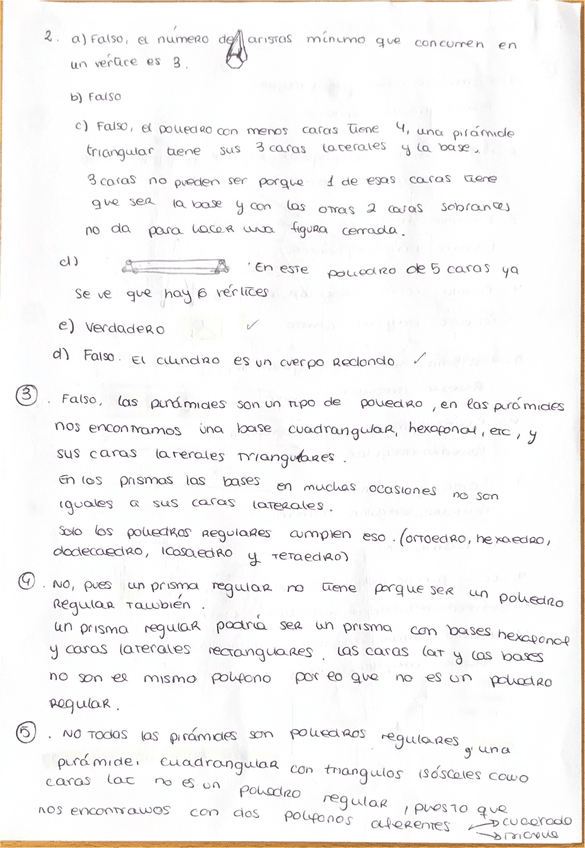 2. a) Falso, el número de aristas mínimo que concurren en
un vértice es 3.
b) Falso
c) Falso, el poliedro con menos caras tiene 4, una pirámide
triangular tiene sus 3 caras laterales y la base.
3 caras no pueden ser porque 1 de esas caras tiene
que ser la base y con las otras 2 caras sobrantes
no da para hacer una figura cerrada.
d) En este poliedro de 5 caras ya
se ve que hay 6 vértices
e) Verdadero ✓
d) Falso. El cilindro es un cuerpo Redondo ✓
3. Falso, las pirámides son un tipo de poliedro, en las pirámides
nos encontramos una base cuadrangular, hexagonal, etc, y
sus caras laterales triangulares.
En los prismas las bases en muchas ocasiones no son
iguales a sus caras laterales.
Solo los poliedros Regulares cumplen eso. (ortoedro, hexaedro,
dodecaedro, icosaedro y tetaedro)
4. NO, pues un prisma regular no tiene porque ser un poliedro
Regular también.
un prisma regular podría ser un prisma con bases hexagonal
y caras laterales rectangulares. Las caras lat y las bases
no son el mismo polígono por lo que no es un poliedro
Regular.
5. NO Todas las pirámides son poliedros regulares, una
pirámide cuadrangular con triangulos isósceles como
caras lat no es un poliedro regular, puesto que
nos encontramos con dos polígonos diferentes → cuadrado